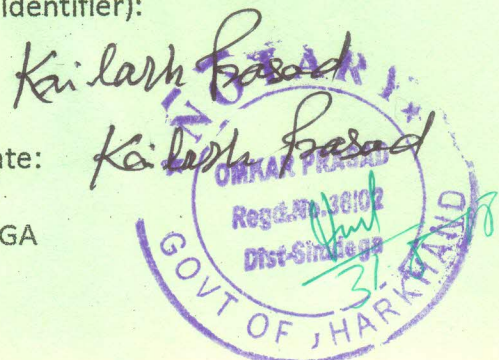 Identifier):
Kailash Prasad
NOTARY
ate: Kailash Prasad
OMKAR PRASAD
Regd.No.36/02
GA
Dist-Simdega
31
GOVT OF JHARKHAND